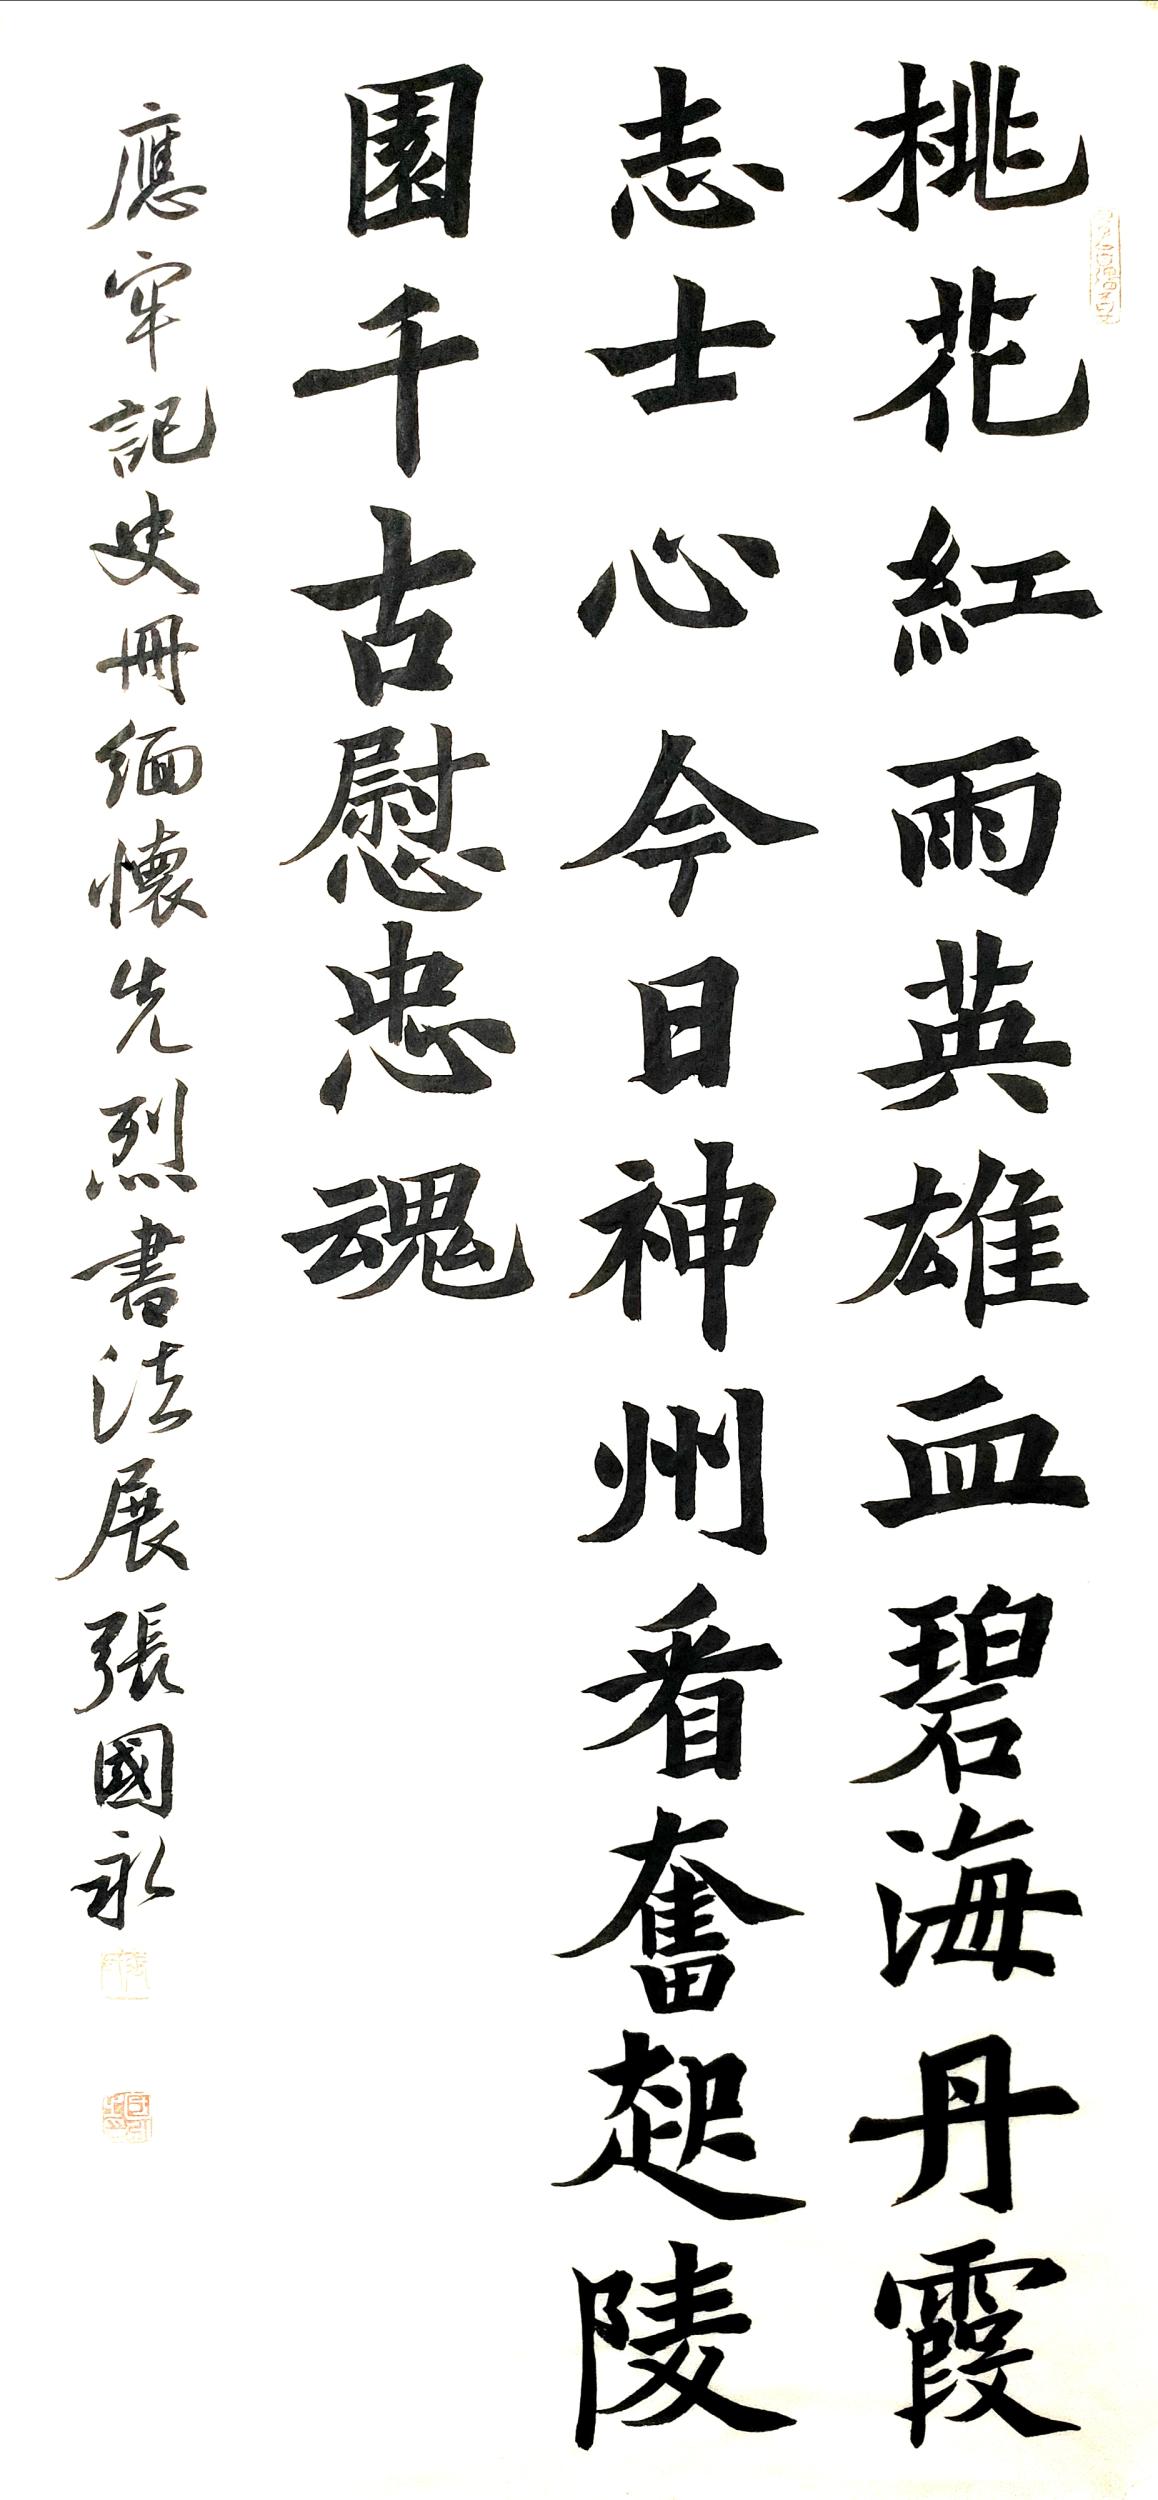 桃花紅雨英雄血碧海丹霞
志士心今日神州看奮起陵
園千古慰忠魂
應牢記史冊缅懷先烈書法展張國永